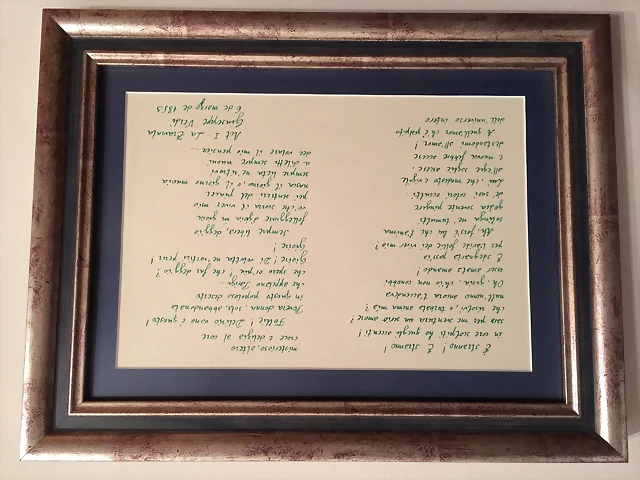 È strano! È strano!
in core scolpiti ho quegli accenti!
sara per me sventura un serio amore?
che risolvi, o turbata anima mia
null'uomo ancora t'accendeva
Oh, gioia, ch'io non conobbi
esser amata amando!
E sdegnarla poss'io
per l'aride follie del viver mio?
Ah, fors'è lui che l'anima
solinga ne' tumulti
godea sovente pingere
de' suoi colori occulti
Lui, che modesto e vigile
all'egre soglie ascese,
e nuova febbre accese
destandomi all'amor!
A quell'amor ch'è palpito
dell'universo intero
misterioso, altero
croce e delizia al core
Follie! Delirio vano è questo!
Povera donna, sola, abbandonata
in questo popoloso deserto
che appellano Parigi...
che spero or più?! che far deggio?
Gioire! Di voluttà ne' vortici perir!
Gioire!
Sempre libera deggio
folleggiare di gioia in gioia
vo' che scorra il viver mio
pei sentieri del piacer
nasca il giorno, o il giorno muoia
sempre lieta ne' ritrovi
a diletti sempre nuovi
dee volare il mio pensier...
Act I La Traviata
Giuseppe Verdi
6 de marzo de 1853